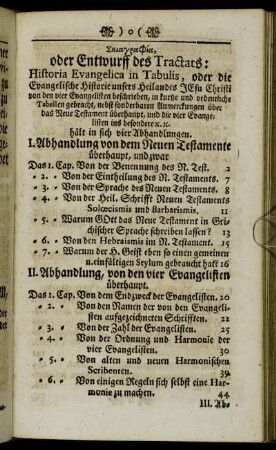 )o(
Σκιαγραφία,
oder Entwurf des Tractats:
Historia Evangelica in Tabulis, oder die
Evangelische Historie unsers Heilandes JEsu Christi
von den vier Evangelisten beschrieben, in kurtze und ordentliche
Tabellen gebracht, nebst sonderbaren Anmerckungen über
das Neue Testament überhaupt, und die vier Evange-
listen ins besondere ꝛc. ꝛc.
hält in sich vier Abhandlungen.
I. Abhandlung von dem Neuen Testamente
überhaupt, und zwar
Das 1. Cap. Von der Benennung des N. Test. 2
= 2. = Von der Eintheilung des N. Testaments. 7
= 3. = Von der Sprache des Neuen Testaments. 8
= 4. = Von der Heil. Schrifft Neuen Testaments
Soloecismis und Barbarismis. 11
= 5. = Warum GOtt das Neue Testament in Gri-
chischer Sprache schreiben lassen? 13
= 6. = Von den Hebraismis im N. Testament. 15
= 7. = Warum der H. Geist eben so einen gemeinen
u. einfältigen Stylum gebraucht habe 16
II. Abhandlung, von den vier Evangelisten
überhaupt.
Das 1. Cap. Von dem Endzweck der Evangelisten. 20
= 2. = Von den Namen der von den Evangeli-
sten aufgezeichneten Schrifften. 21
= 3. = Von der Zahl der Evangelisten. 25
= 4. = Von der Ordnung und Harmonie der
vier Evangelisten. 30
= 5. = Von alten und neuen Harmonischen
Scribenten. 39
= 6. = Von einigen Regeln sich selbst eine Har-
monie zu machen. 44
III. Ab=